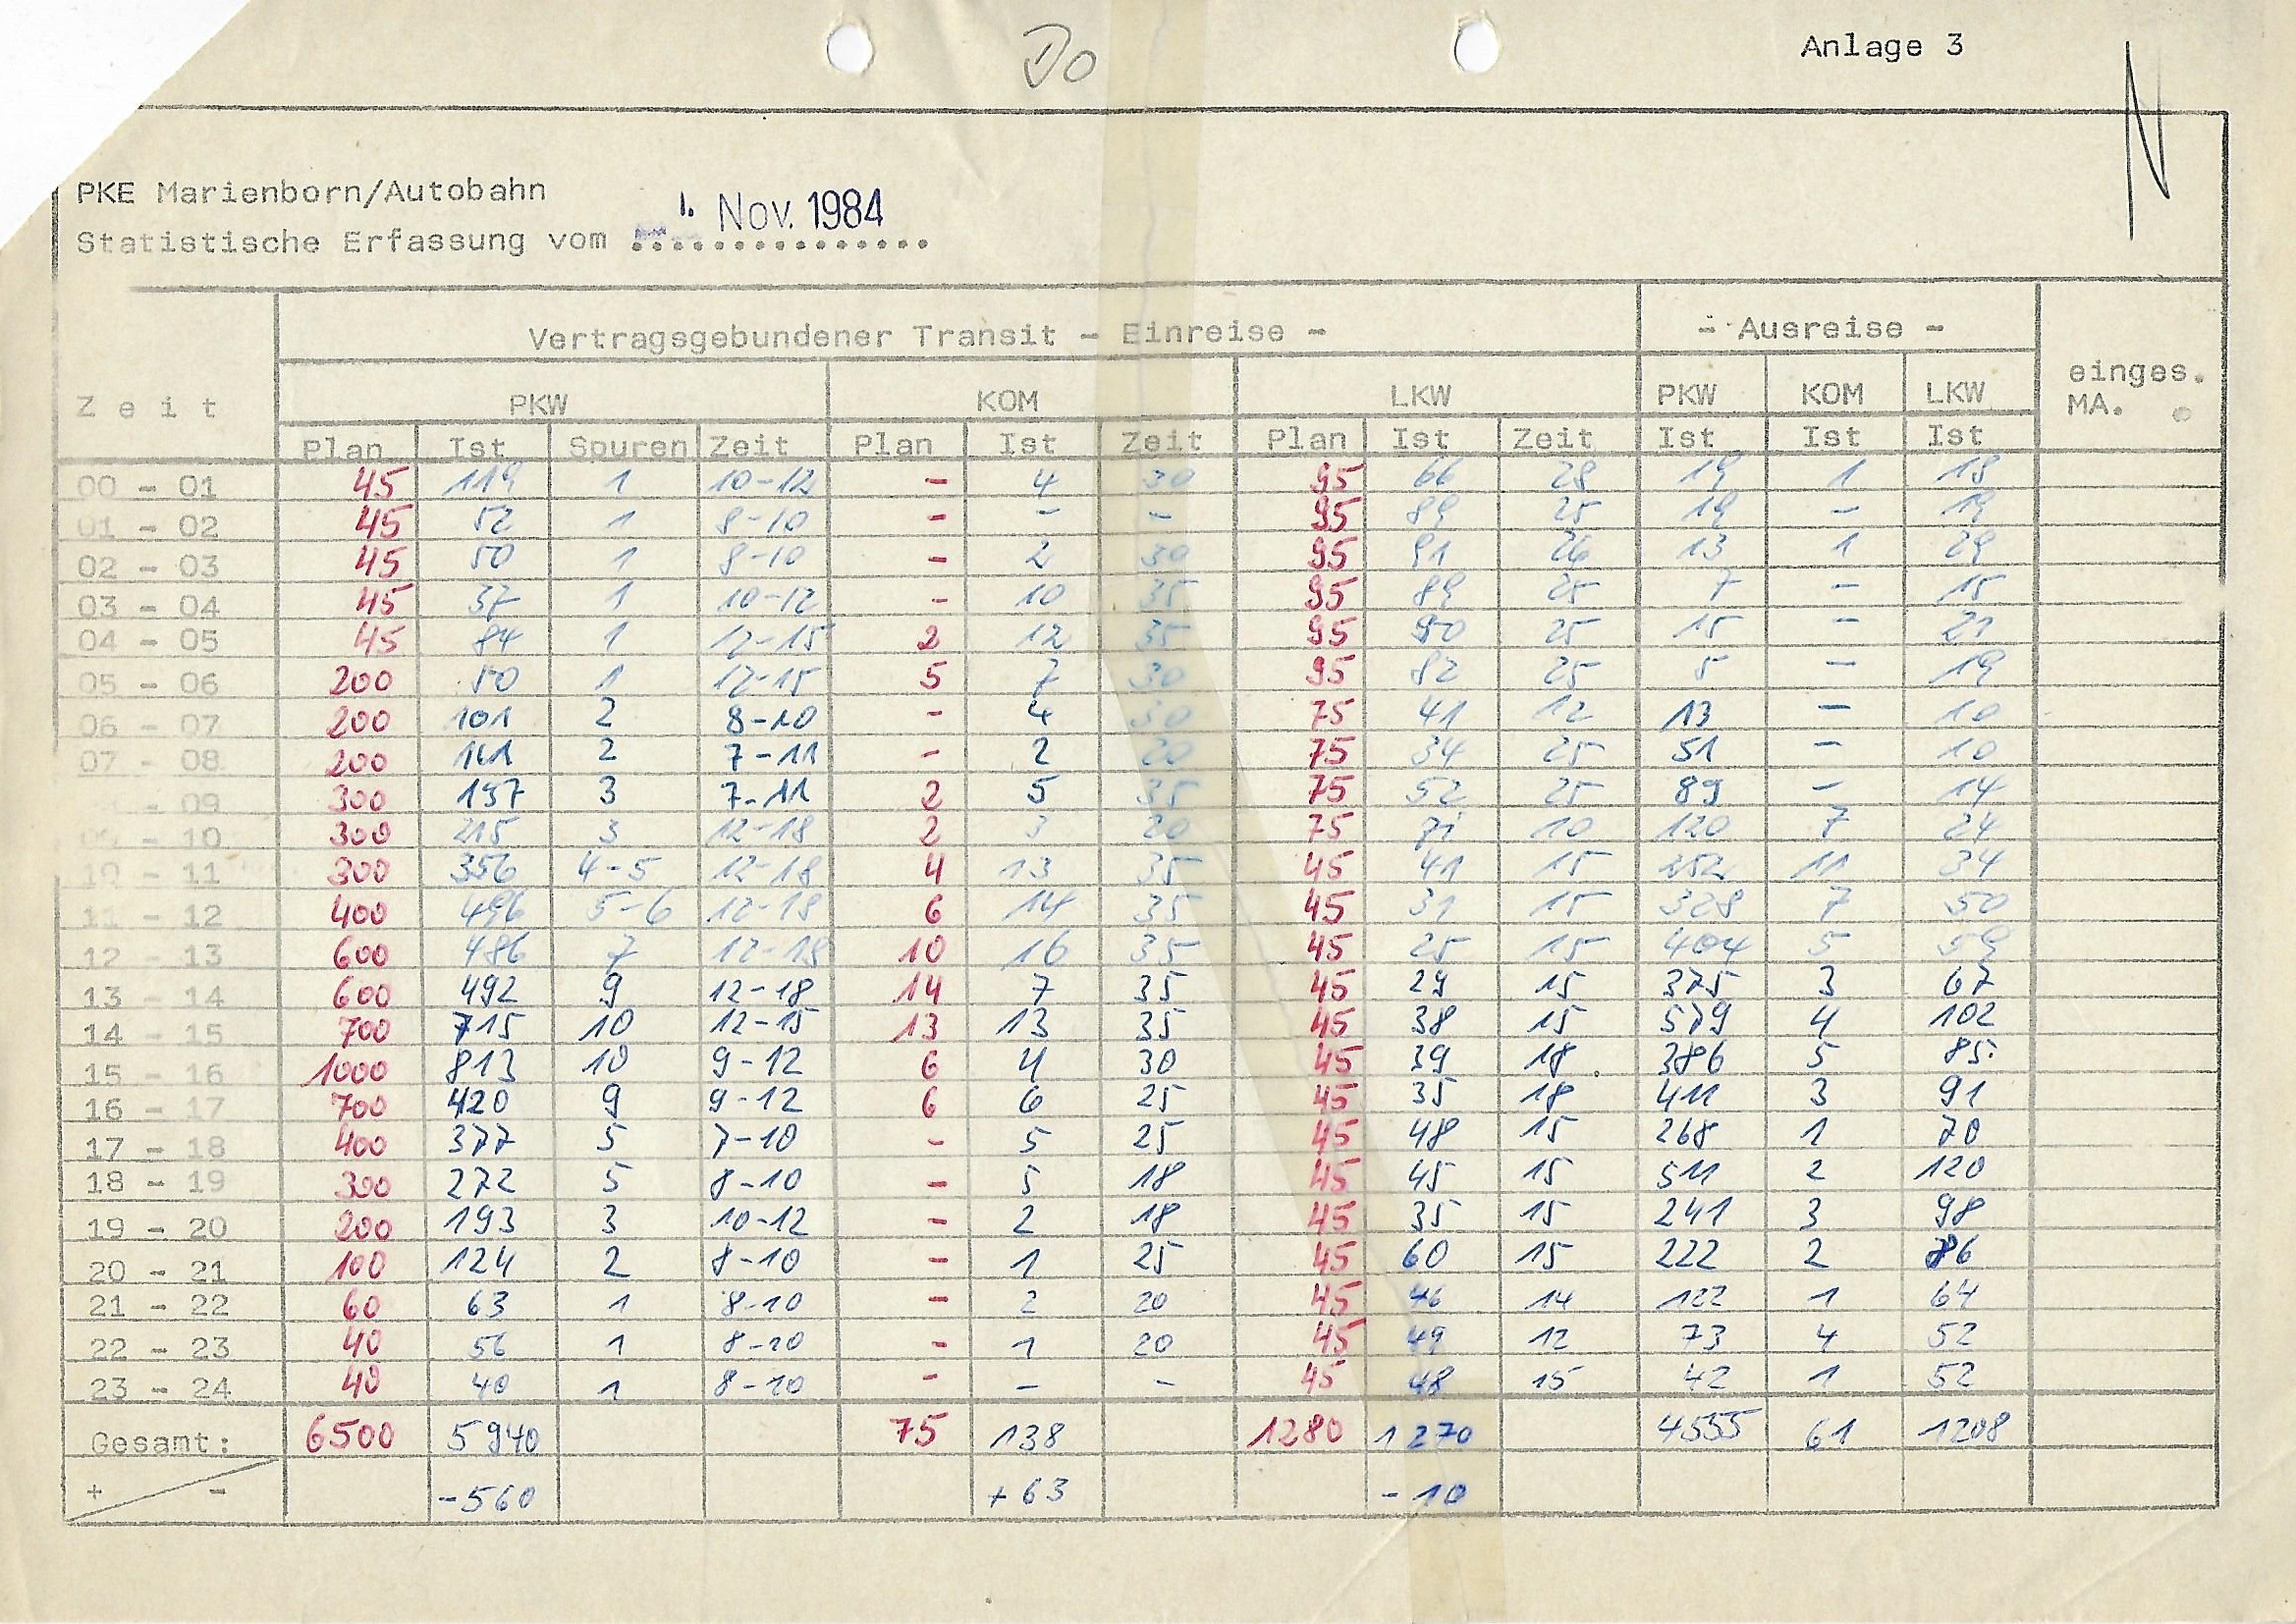 Do
Anlage 3
N
PKE Marienborn/Autobahn
Statistische Erfassung vom 1. Nov. 1984
Vertragsgebundener Transit - Einreise - - Ausreise -
Zeit PKW KOM LKW PKW KOM LKW einges. MA.
Plan Ist Spuren Zeit Plan Ist Zeit Plan Ist Zeit Ist Ist Ist
00 - 01 45 119 1 10-12 - 4 30 95 66 28 19 1 18
01 - 02 45 52 1 8-10 - - - 95 89 25 19 - 19
02 - 03 45 50 1 8-10 - 2 30 95 91 26 13 1 29
03 - 04 45 37 1 10-12 - 10 35 95 89 25 7 - 15
04 - 05 45 84 1 12-15 2 12 35 95 90 25 15 - 21
05 - 06 200 50 1 12-15 5 7 30 95 82 25 5 - 19
06 - 07 200 101 2 8-10 - 4 30 75 41 12 13 - 10
07 - 08 200 161 2 7-11 - 2 20 75 34 25 51 - 10
- 09 300 197 3 7-11 2 5 35 75 52 25 89 - 14
- 10 300 215 3 12-18 2 3 20 75 10 120 7 24
10 - 11 300 356 4-5 12-18 4 13 35 45 41 15 11 34
11 - 12 400 496 5-6 12-18 6 14 35 45 31 15 328 7 50
12 - 13 600 486 7 12-18 10 16 35 45 25 15 404 5 59
13 - 14 600 492 9 12-18 14 7 35 45 29 15 375 3 67
14 - 15 700 715 10 12-15 13 13 35 45 38 15 579 4 102
15 - 16 1000 813 10 9-12 6 4 30 45 39 18 386 5 85
16 - 17 700 420 9 9-12 6 6 25 45 35 18 411 3 91
17 - 18 400 377 5 7-10 - 5 25 45 48 15 268 1 70
18 - 19 300 272 5 8-10 - 5 18 45 45 15 511 2 120
19 - 20 200 193 3 10-12 - 2 18 45 35 15 241 3 98
20 - 21 100 124 2 8-10 - 1 25 45 60 15 222 2 86
21 - 22 60 63 1 8-10 - 2 20 45 46 14 122 1 64
22 - 23 40 56 1 8-10 - 1 20 45 49 12 73 4 52
23 - 24 40 40 1 8-10 - - - 45 48 15 42 1 52
Gesamt: 6500 5940 75 138 1280 1270 4555 61 1208
+ - -560 +63 -10